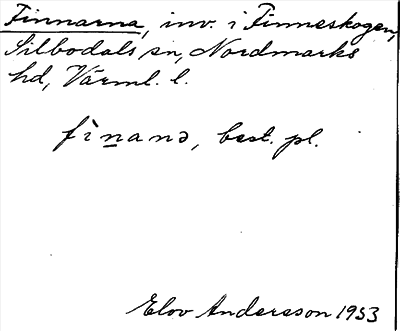 Finnarna, inv. i Finneskogen,
Silbodals sn, Nordmarks
hd, Värml. l.
fìṉanə, best. pl.
Elov Andersson 1953